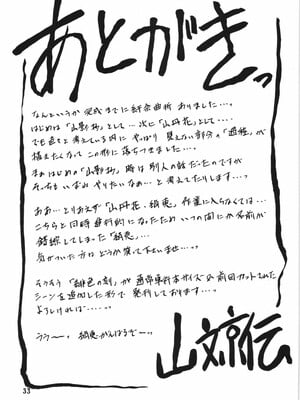 あとがきっ
なんというか完成までに紆余曲折ありました…。
はじめは「山野
でも色々と考えている内にやっぱり見えない部分の「過程」が
描きたくなってこの形に落ちつきました…。
まぁはじめの
時は別人の話だったのですが
そっちもいずれやりたいなぁ…と考えてたりします…。
ああ…とりあえず「山丹花・
作業に入らなくては…
こちらと同時進行的になったためいつの間にか名前が
錯綜してしまった
気がついた方はどうか笑って下さいませ…。
そうそう「緋色の刻」が通常単行本サイズの前回カットされた
シーンを追加した形で発行しております…。
よろしければ……。
ううー。
がんばるぞーっ。
山文京伝
33